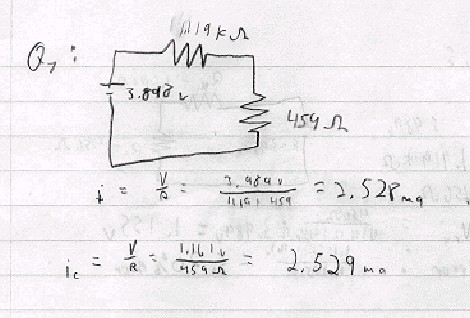 1.119 kΩ
Q7:
459 Ω
i = V/R = 3.989v / 1119+459 = 2.528 ma
ic = V/R = 1.161v / 459Ω = 2.529 ma